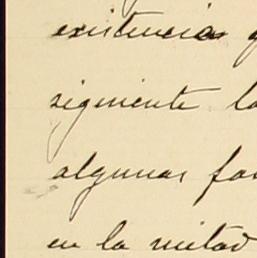 existencia
sigmiente la
algunas fa
en la mitad